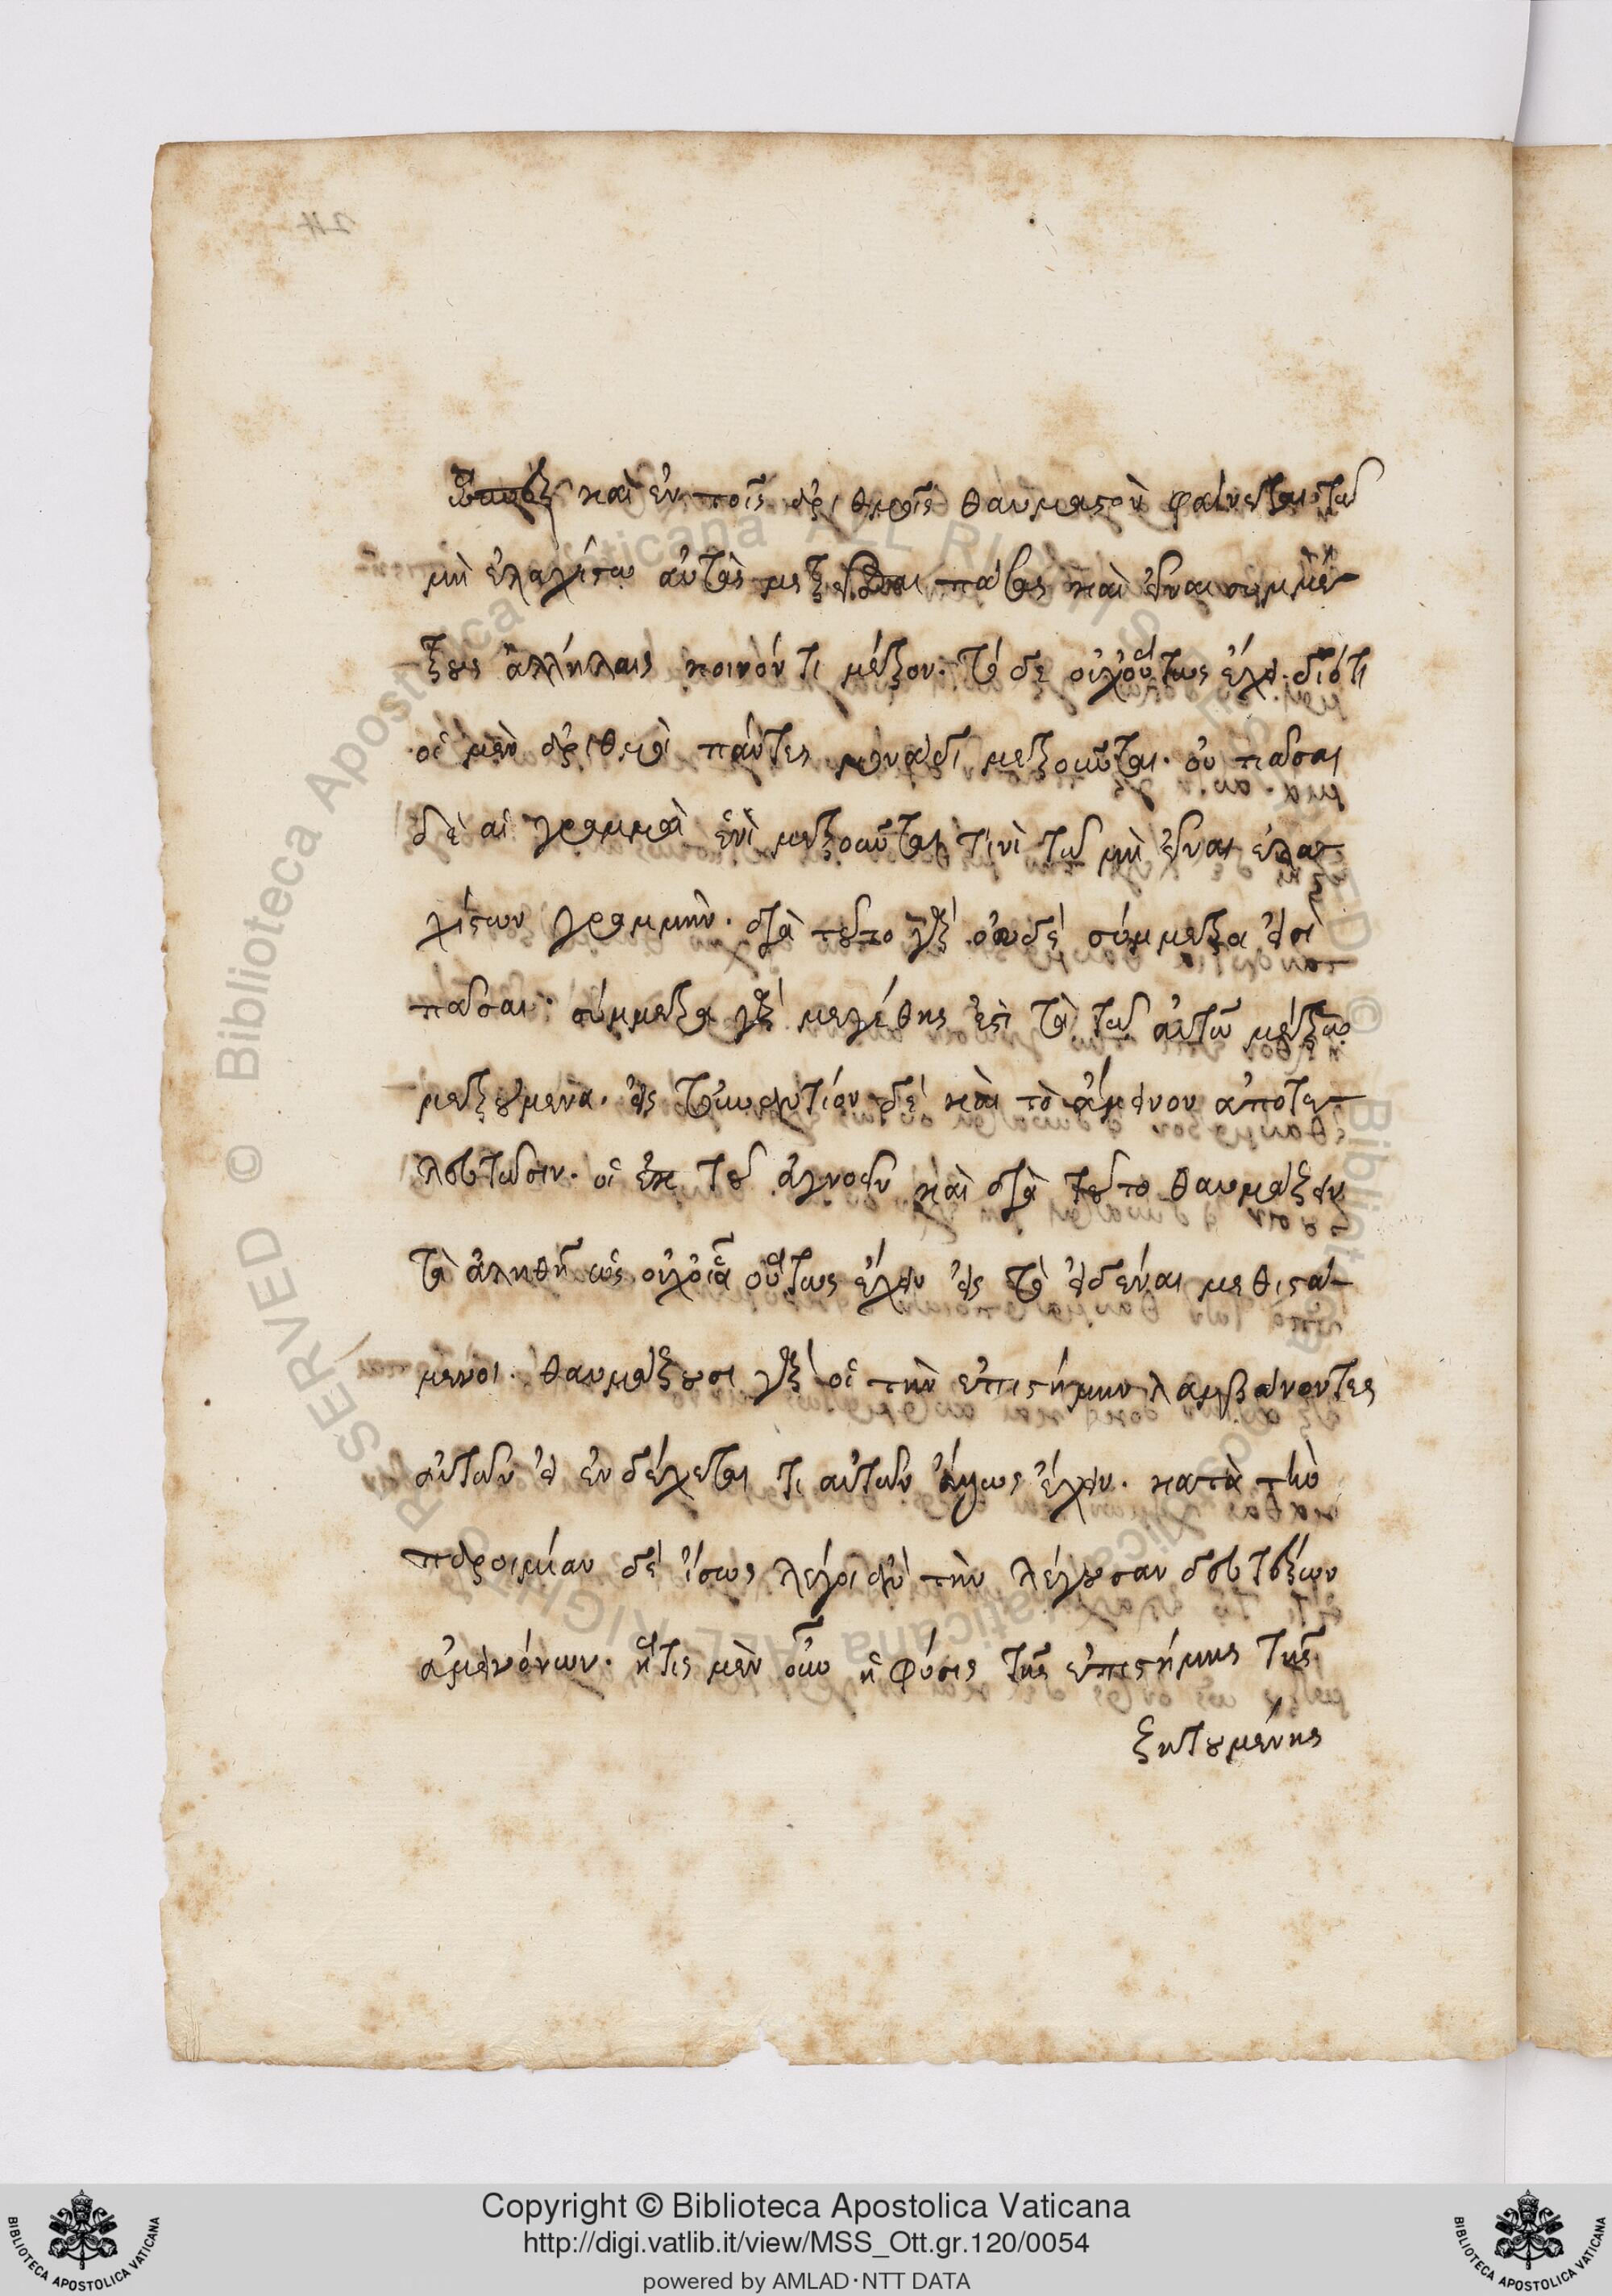 καὶ ἐν τοῖς ἀριθμοῖς θαυμαστὸν φαίνεται τῶ
μὴ ἐλαχίστω αὐτὰς μετρεῖσθαι πάσας καὶ εἶναι συμμέ-
τρους ἀλλήλαις κοινόν τι μέτρον. τὸ δὲ οὐχ οὕτως ἔχει. διότι
οἱ μὲν ἀριθμοὶ πάντες μονάδι μετροῦνται. οὐ πᾶσαι
δὲ αἱ γραμμαὶ ἑνὶ μετροῦνται τινὶ τῶ μὴ εἶναι ἐλα-
χίστων γραμμὴν. διὰ τοῦτο γὰρ οὐδὲ σύμμετροι εἰσὶ
πᾶσαι. σύμμετρα γὰρ μεγέθης ἐστὶ τὰ τῶ αὐτῶ μέτρω
μετρούμενα. εἰς τοὐναντίον δὲ καὶ τὸ ἄμεινον ἀποτε-
λευτῶσιν. οἱ ἐκ τοῦ ἀγνοεῖν καὶ διὰ τοῦτο θαυμάζειν
τὰ ἀληθῆ ὡς οὐχ οἷα οὕτως ἔχειν εἰς τὸ εἰδέναι μεθιστά-
μενοι. θαυμάζουσι γὰρ οἱ τὴν ἐπιστήμην λαμβάνοντες
αὐτῶν εἰ ἐνδέχεται τι αὐτῶν ἄλλως ἔχειν. κατὰ τὴν
παροιμίαν δὲ ἴσως λέγοι ἂν τὴν λέγουσαν δευτέρων
ἀμεινόνων. ἥτις μὲν οὖν ἡ φύσις τῆς ἐπιστήμης τῆς
ζητουμένης
24
© Biblioteca Apostolica Vaticana ALL RIGHTS RESERVED
Copyright © Biblioteca Apostolica Vaticana
http://digi.vatlib.it/view/MSS_Ott.gr.120/0054
powered by AMLAD·NTT DATA
BIBLIOTECA APOSTOLICA VATICANA
BIBLIOTECA APOSTOLICA VATICANA